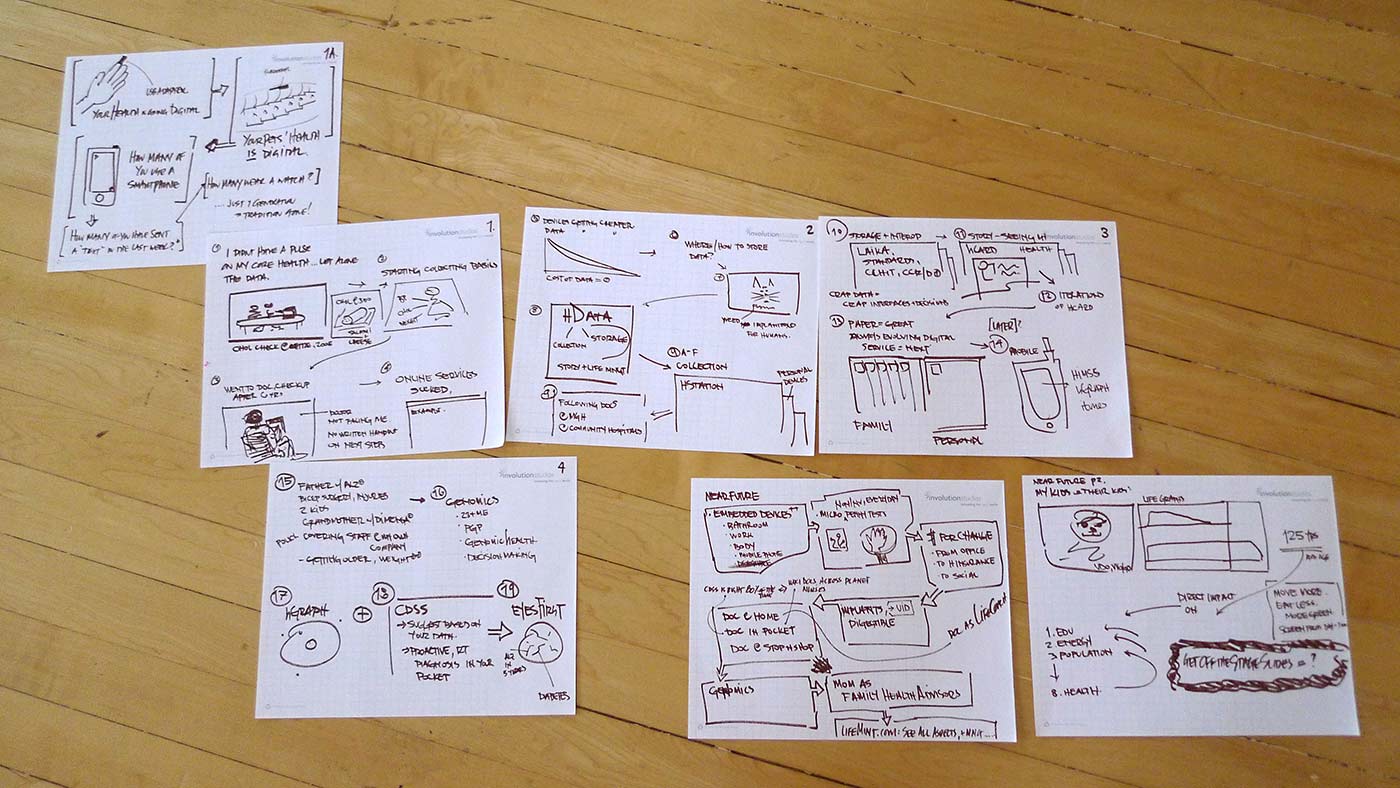 involutionstudios
1A.
USB ADAPTER
YOUR HEALTH IS GOING DIGITAL
YOUR PETS' HEALTH
IS DIGITAL.
HOW MANY OF
YOU USE A
SMARTPHONE
HOW MANY WEAR A WATCH?
.... JUST 1 GENERATION
→ TRADITION ALONE!
HOW MANY OF YOU HAVE SENT
A "TEXT" IN THE LAST WEEK?
1.
I DIDN'T HAVE A PULSE
ON MY CORE HEALTH... LET ALONE
THE DATA.
2
STARTING COLLECTING BASICS
SALAMI
CHEESE
WEIGHT
3
WENT TO DOC, CHECKUP
AFTER 6 YRS
DOCTOR
NOT FACING ME
NO WRITTEN HANDOUT
ON NEXT STEPS
4
ONLINE SERVICES
SUCKED.
EXAMPLE.
involutionstudios
2
5
DEVICES GETTING CHEAPER
DATA
COST OF DATA = 0
6
WHERE/HOW TO STORE
DATA?
7
NEED
IMPLANTABLES
FOR HUMANS.
8
HDATA
COLLECTION
STORAGE
STORY + LIFE MNGT
9 A-F
COLLECTION
HSTATION
PERSONAL
DEVICES
FOLLOWING DOCS
@ MGH
@ COMMUNITY HOSPITALS
involutionstudios
3
10
STORAGE + INTEROP
LAIKA,
STANDARDS,
CCHIT, CCR/D
CRAP DATA =
CRAP INTERFACES + DECISIONS
11
STORY - SEEING MY
HEALTH
HCARD
12
ITERATIONS
OF HCARD
13
PAPER = GREAT
ALWAYS EVOLVING DIGITAL
SERVICE = NEXT
FAMILY
PERSONAL
[LATER]?
14
MOBILE
HIMSS
HGRAPH
involutionstudios
4
15
FATHER w/ ALZ
BICEP SURGERY, INJURIES
2 KIDS
GRANDMOTHER w/ DIMENTIA
COVERING STAFF @ MY OWN
COMPANY
- GETTING OLDER, WEIGHT
16
GENOMICS
· 23+ME
· PGP
· GENOMIC HEALTH
· DECISION MAKING
17
HGRAPH
+
18
CDSS
→ SUGGEST BASED ON
YOUR DATA.
→ PROACTIVE, RT
DIAGNOSIS IN YOUR
POCKET
19
EYES FIRST
DIABETES
involutionstudios
NEAR FUTURE
· EMBEDDED DEVICES
· BATHROOM
· WORK
· BODY
NONINV, EVERYDAY
· MICRO TESTS
$ FOR CHANGE
· FROM OFFICE
· TO H INSURANCE
· TO SOCIAL
IMPLANTS, + UID
DIGESTIBLE
DOC @ HOME
DOC IN POCKET
DOC @ STOP N SHOP
DOC AS LIFE COACH
GENOMICS
MOM AS
FAMILY HEALTH ADVISORS
LIFEMINT.COM: SEE ALL ASPECTS, + MNG ....
NEAR FUTURE P2.
MY KIDS + THEIR KIDS:
LIFE GRAPH
125 YRS
AVG AGE
DIRECT IMPACT
ON
1. EDU
2 ENERGY
3 POPULATION
8. HEALTH.
MOVE MORE.
EAT LESS.
MORE GREEN.
GET OFF THE STAGE SLIDES = ?